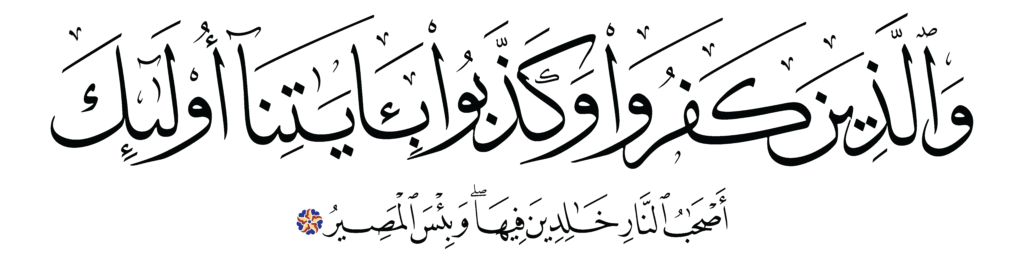 وَٱلَّذِينَ كَفَرُوا۟ وَكَذَّبُوا۟ بِـَٔايَـٰتِنَآ أُو۟لَـٰٓئِكَ
أَصْحَـٰبُ ٱلنَّارِ خَـٰلِدِينَ فِيهَا ۖ وَبِئْسَ ٱلْمَصِيرُ